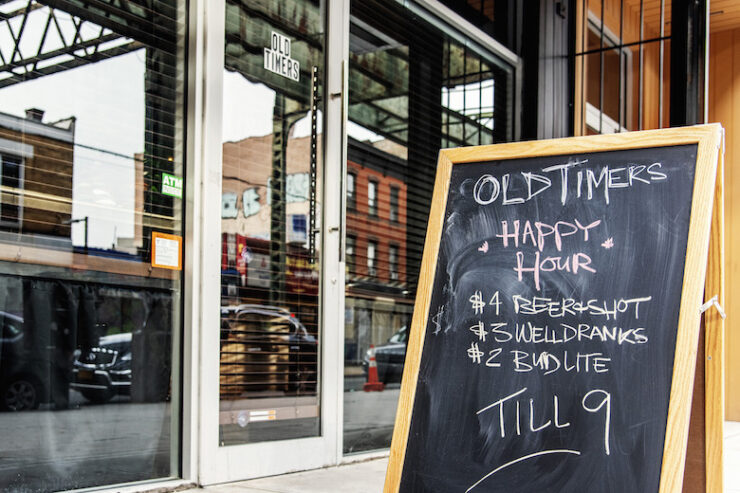 OLD
TIMERS
ATM
OLDTIMERS
HAPPY
HOUR
$4 BEER+SHOT
$3 WELLDRANKS
$2 BUDLITE
TILL 9